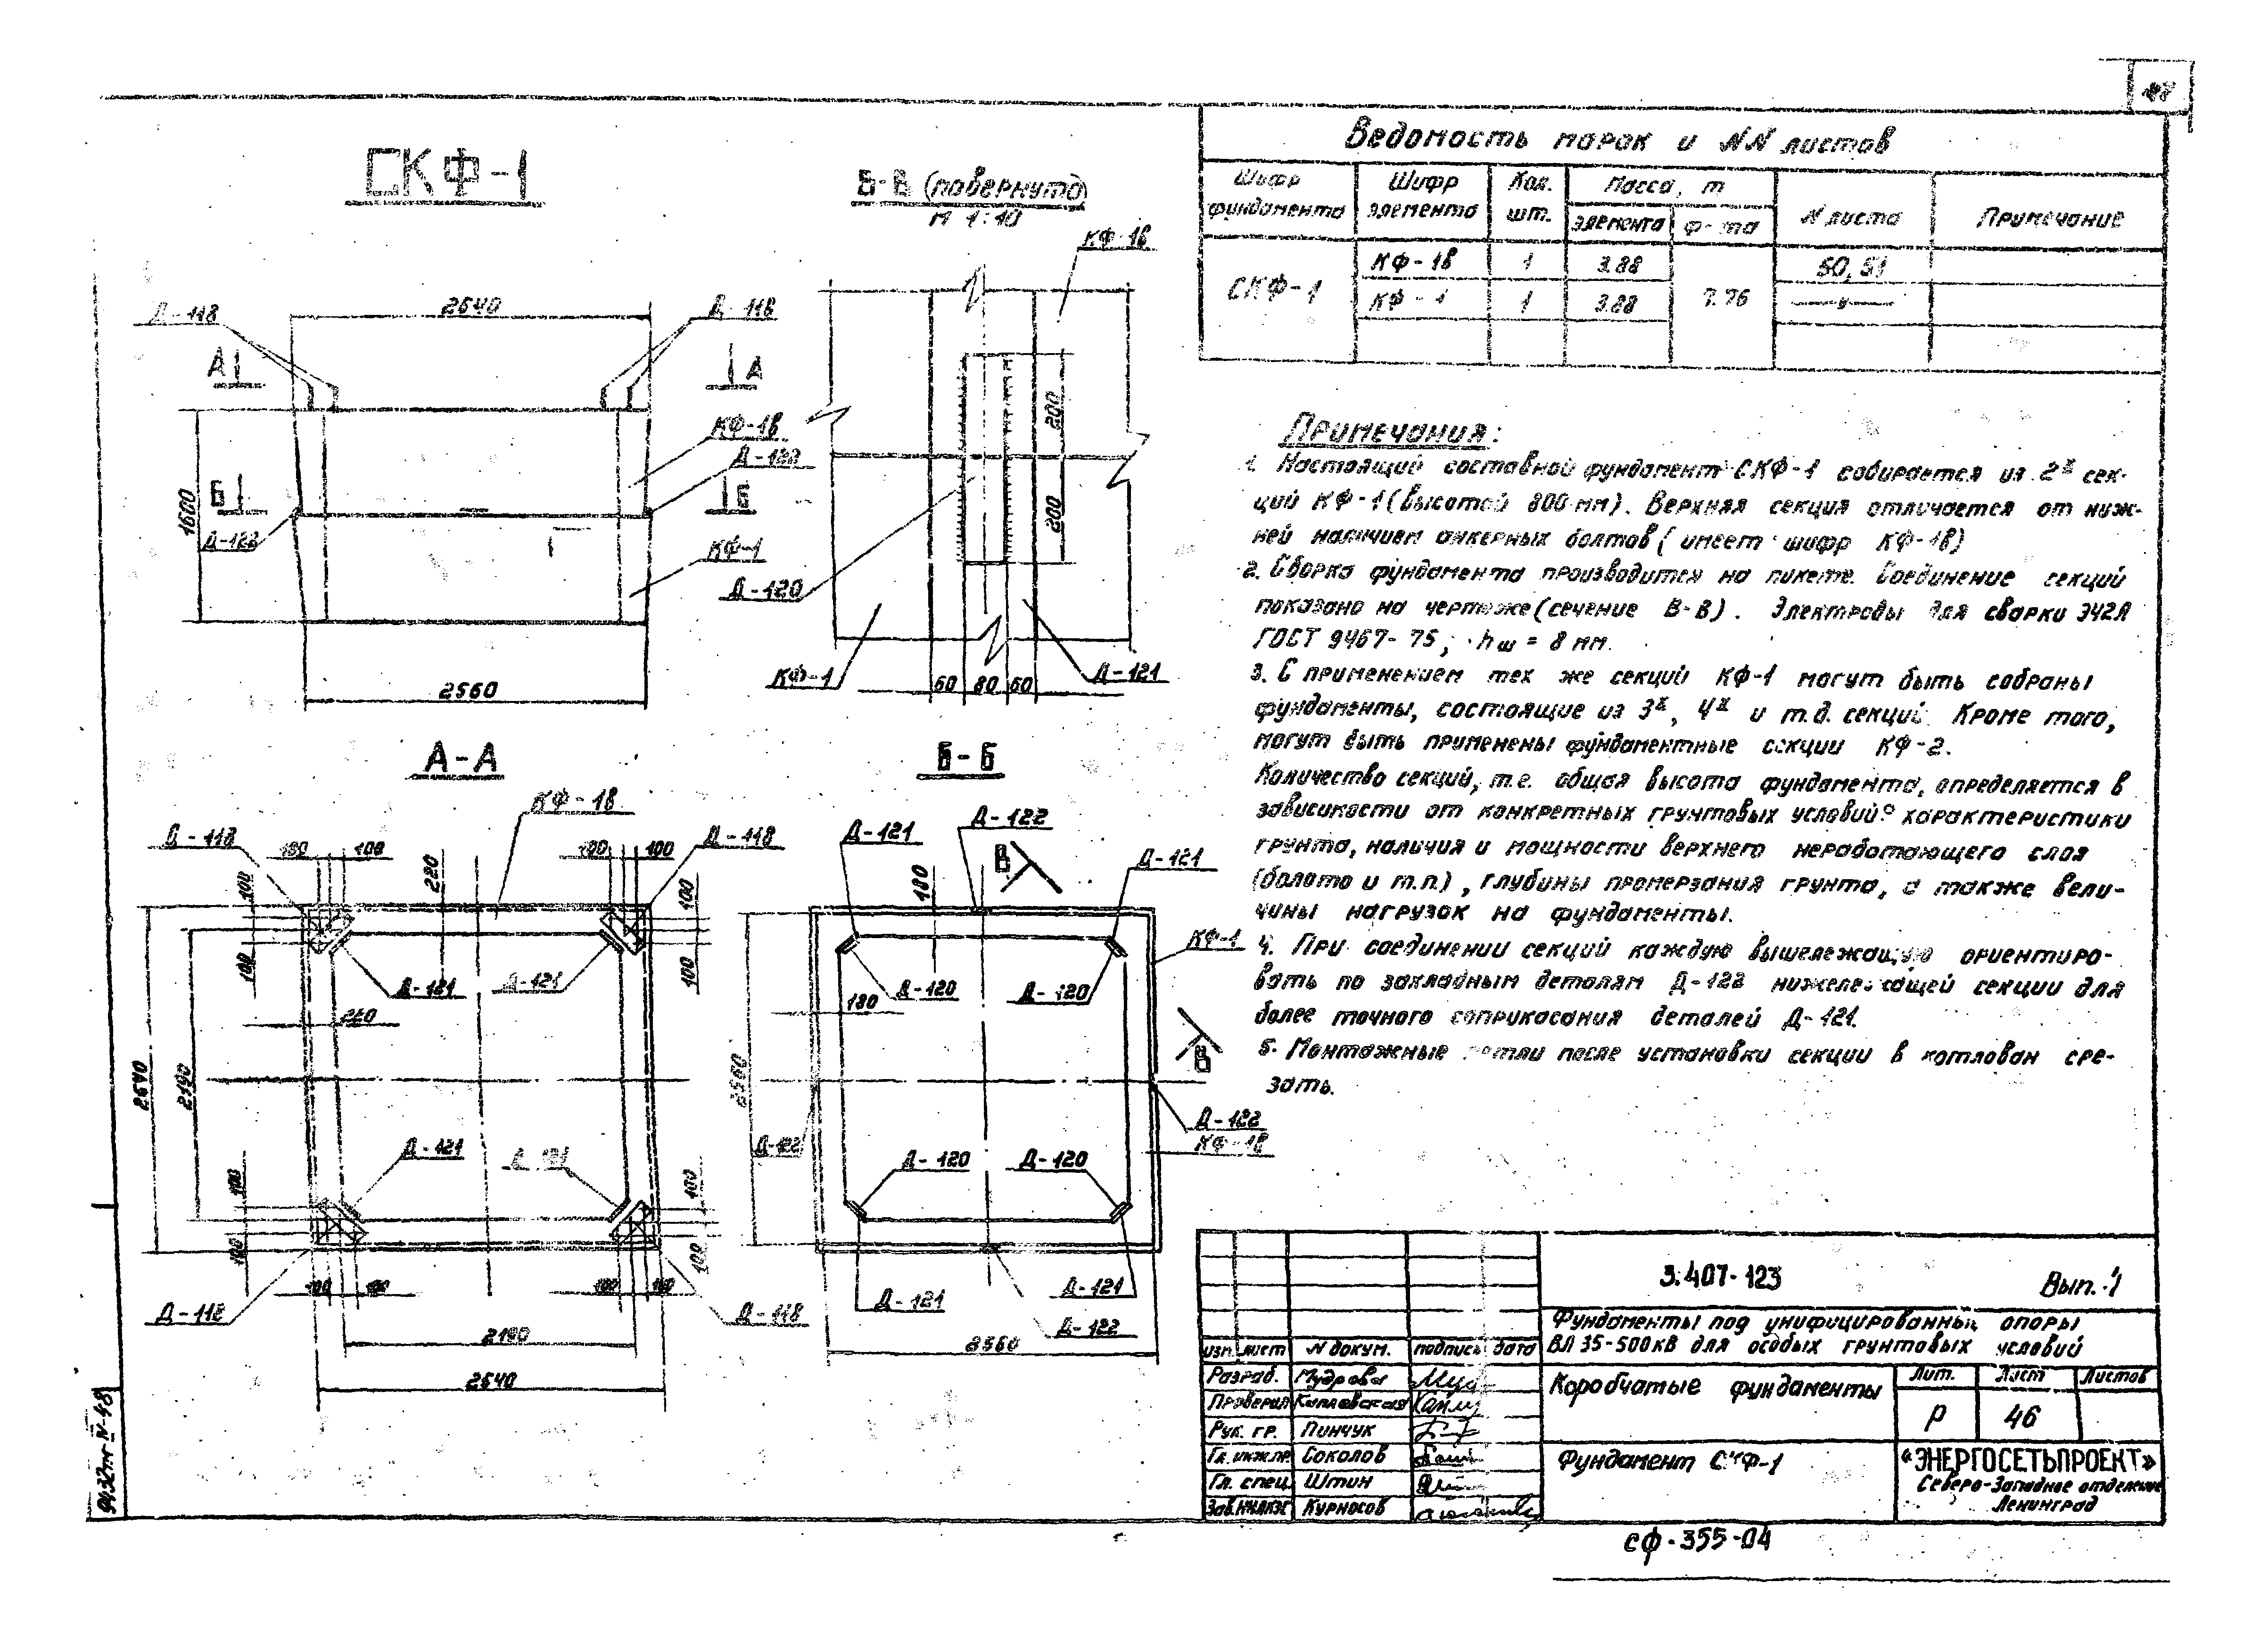 СКФ-1
В-В (повернуто)
М 1:10
КФ-1в
2640
Д-118
Д-118
А
А
КФ-1в
Д-122
Б
Б
1600
Д-122
КФ-1
2560
200
200
Д-120
КФ-1
60 80 60
Д-121
А-А
КФ-1в
Д-118
Д-118
100 100
220
100 100
100
100
100
100
Д-121
Д-121
220
2640
2190
Д-121
Д-121
100
100
100
100
100 100
100 100
Д-118
Д-118
2190
2640
Б-Б
Д-121
Д-122
В
Д-121
180
КФ-1
Д-120
Д-120
180
В
2560
Д-122
Д-122
КФ-1в
Д-120
Д-120
Д-121
Д-121
Д-122
2560
Ведомость марок и NN листов
Шифр фундамента
Шифр элемента
Кол. шт.
Масса, т
элемента
ф-та
N листа
Примечание
СКФ-1
КФ-1в 1 3.88 7.76 50, 51
КФ-1 1 3.88 —"—
Примечания:
1. Настоящий составной фундамент СКФ-1 собирается из 2х сек-
ций КФ-1 (высотой 800 мм). Верхняя секция отличается от ниж-
ней наличием анкерных болтов (имеет шифр КФ-1в)
2. Сборка фундамента производится на пикете. Соединение секций
показано на чертеже (сечение В-В). Электроды для сварки Э42А
ГОСТ 9467-75; hш = 8 мм.
3. С применением тех же секций КФ-1 могут быть собраны
фундаменты, состоящие из 3х, 4х и т.д. секций. Кроме того,
могут быть применены фундаментные секции КФ-2.
Количество секций, т.е. общая высота фундамента, определяется в
зависимости от конкретных грунтовых условий: характеристики
грунта, наличия и мощности верхнего неработающего слоя
(болото и т.п.), глубины промерзания грунта, а также вели-
чины нагрузок на фундаменты.
4. При соединении секций каждую вышележащую ориентиро-
вать по закладным деталям Д-122 нижележащей секции для
более точного соприкасания деталей Д-121.
5. Монтажные петли после установки секции в котлован сре-
зать.
3.407-123 Вып. 1
Фундаменты под унифицированные опоры
ВЛ 35-500кВ для особых грунтовых условий
изм. лист N докум. подпись дата
Разраб. Мудрова
Проверил
Рук. гр. Пинчук
Гл. инж. пр. Соколов
Гл. спец. Штин
Курносов
Коробчатые фундаменты
Лит. Лист Листов
Р 46
Фундамент СКФ-1
«ЭНЕРГОСЕТЬПРОЕКТ»
Северо-Западное отделение
Ленинград
СФ-355-04
9432тм-N-48